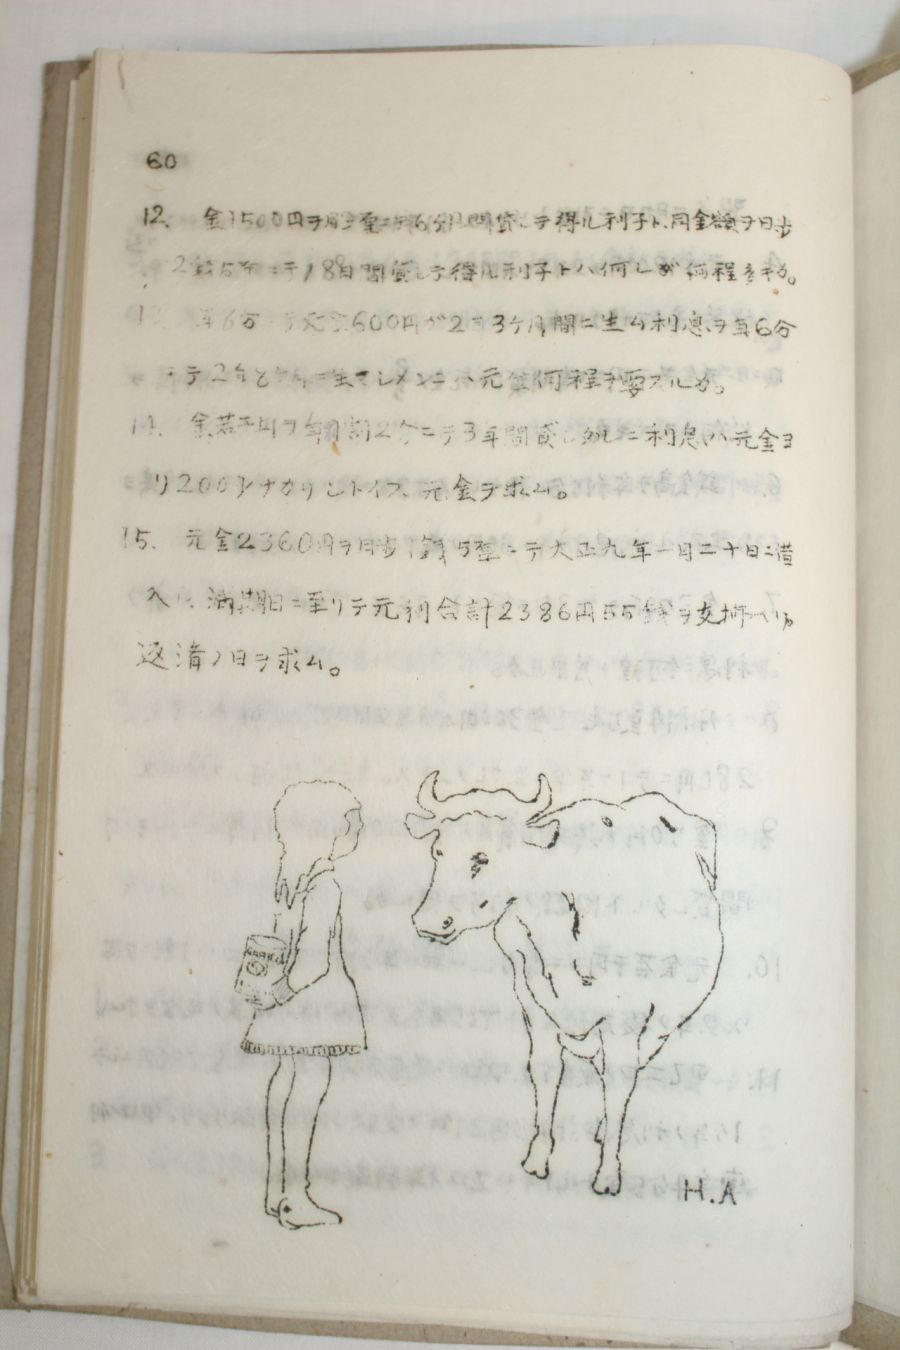 60
12. 金1500円ヲ月 厘ニテ6ケ月間貸シテ得ル利子ト、同金額ヲ日歩
2銭5厘ニテ188日間貸シテ得ル利子トハ何レガ何程多キカ。
年6分 テ元金600円ガ2年3ケ月間ニ生ム利息ヲ年6分
ニテ2年 ケ年ニ生マレメンニハ元金何程ヲ要スルカ。
14. 金若干円ヲ年 割2分ニテ3年間貸シタルニ利息ハ元金ヨ
リ200円ナカリシトイフ、元金ヲ求ム。
15. 元金2360円ヲ日歩1銭5厘ニテ大正九年一月二十日ニ借
入レ 満期日ニ至リテ元利合計2386円55銭ヲ支拂ヘリ。
返濟ノ日ヲ求ム。
H.A